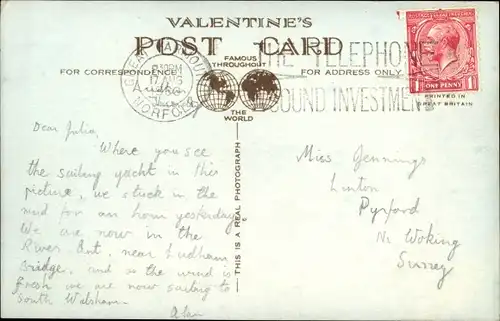 VALENTINE'S
POST CARD
FAMOUS
THROUGHOUT
FOR CORRESPONDENCE
FOR ADDRESS ONLY
THE
WORLD
THE TELEPHONE
SOUND INVESTMENT
GREAT YARMOUTH
NORFOLK
ONE PENNY
PRINTED IN
GREAT BRITAIN
THIS IS A REAL PHOTOGRAPH
Dear Julia,
Where you see
the sailing yacht in this
picture, we stuck in the
mud for an hour yesterday.
We are now in the
River Ant, near Ludham
Bridge, and as the wind is
fresh we are now sailing to
South Walsham.
Alan
Miss Jennings
Linton
Pyrford
Nr Woking
Surrey